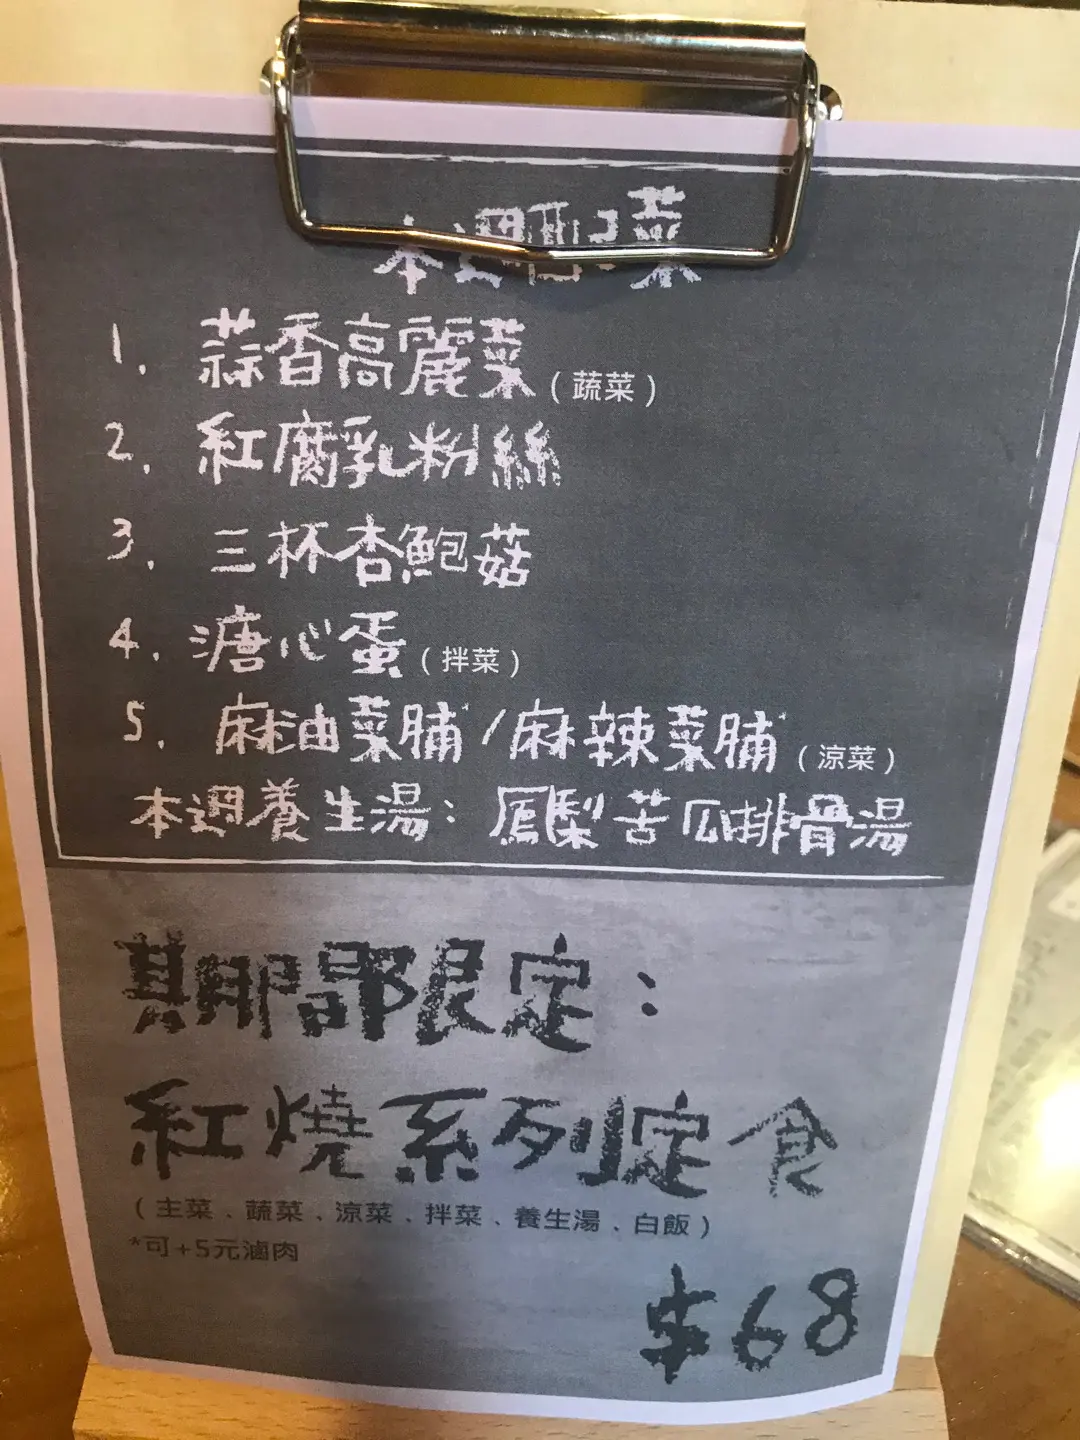 本週配菜
1. 蒜香高麗菜(蔬菜)
2. 紅腐乳粉絲
3. 三杯杏鮑菇
4. 溏心蛋(拌菜)
5. 麻油菜脯/麻辣菜脯(涼菜)
本週養生湯:鳳梨苦瓜排骨湯
期間限定:
紅燒系列定食
(主菜、蔬菜、涼菜、拌菜、養生湯、白飯)
*可+5元滷肉
$68